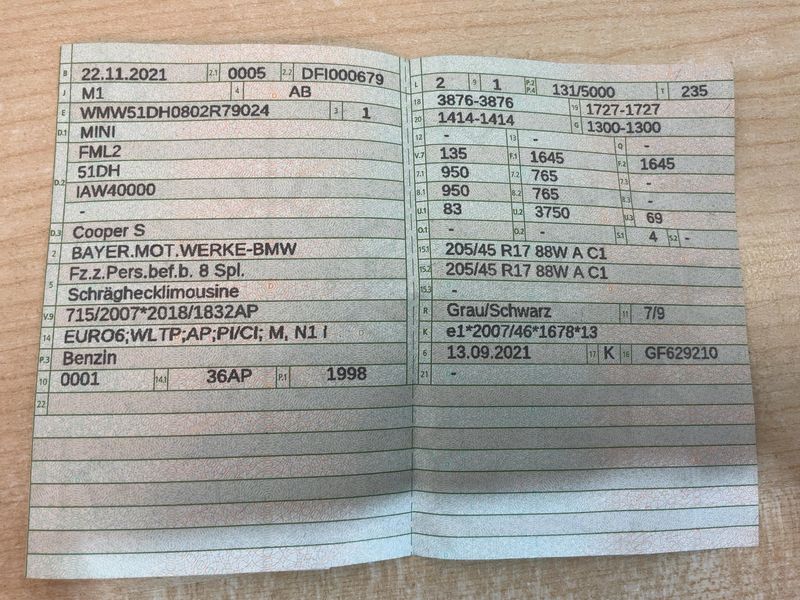 B 22.11.2021 2.1 0005 2.2 DFI000679
J M1 4 AB
E WMW51DH0802R79024 3 1
D.1 MINI
FML2
51DH
D.2 IAW40000
-
D.3 Cooper S
2 BAYER.MOT.WERKE-BMW
Fz.z.Pers.bef.b. 8 Spl.
5 Schräghecklimousine
V.9 715/2007*2018/1832AP
14 EURO6;WLTP;AP;PI/CI; M, N1 I
P.3 Benzin
10 0001 14.1 36AP P.1 1998
22
L 2 9 1 P.2 P.4 131/5000 T 235
18 3876-3876 19 1727-1727
20 1414-1414 G 1300-1300
12 - 13 - Q -
V.7 135 F.1 1645 F.2 1645
7.1 950 7.2 765 7.3 -
8.1 950 8.2 765 8.3 -
U.1 83 U.2 3750 U.3 69
O.1 - O.2 - S.1 4 S.2 -
15.1 205/45 R17 88W A C1
15.2 205/45 R17 88W A C1
15.3 -
R Grau/Schwarz 11 7/9
K e1*2007/46*1678*13
6 13.09.2021 17 K 16 GF629210
21 -